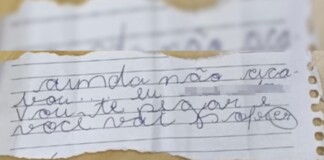 ainda não aca-
bou... eu
vou te pegar e
você vai